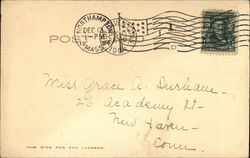 NORTHAMPTON
DEC
1-PM
MASS.
POS
D
Miss Grace A. Durham-
26 Academy St-
New Haven-
Conn.
THIS SIDE FOR THE ADDRESS.